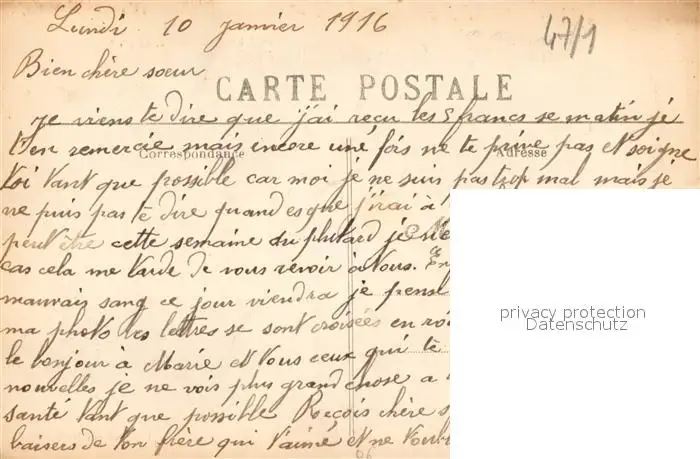 Lundi 10 janvier 1916
47/1
Bien chère soeur
CARTE POSTALE
je viens te dire que j'ai reçu les 5 francs se matin je
t'en remercie mais encore une fois ne te prive pas et soigne
Correspondance Adresse
toi tant que possible car moi je ne suis pas trop mal mais je
ne puis pas te dire quand esque j'irai à
peut être cette semaine ou plutard je n'e
cas cela me tarde de vous revoir à tous. En
mauvais sang ce jour viendra je pense
ma photo les lettres se sont croisées en ro
le bonjour à Marie et tous ceux qui te
nouvelles je ne vois plus grand chose a
santé tant que possible Reçois chère s
baisers de ton frère qui t'aime et ne t'oubl
privacy protection
Datenschutz
06